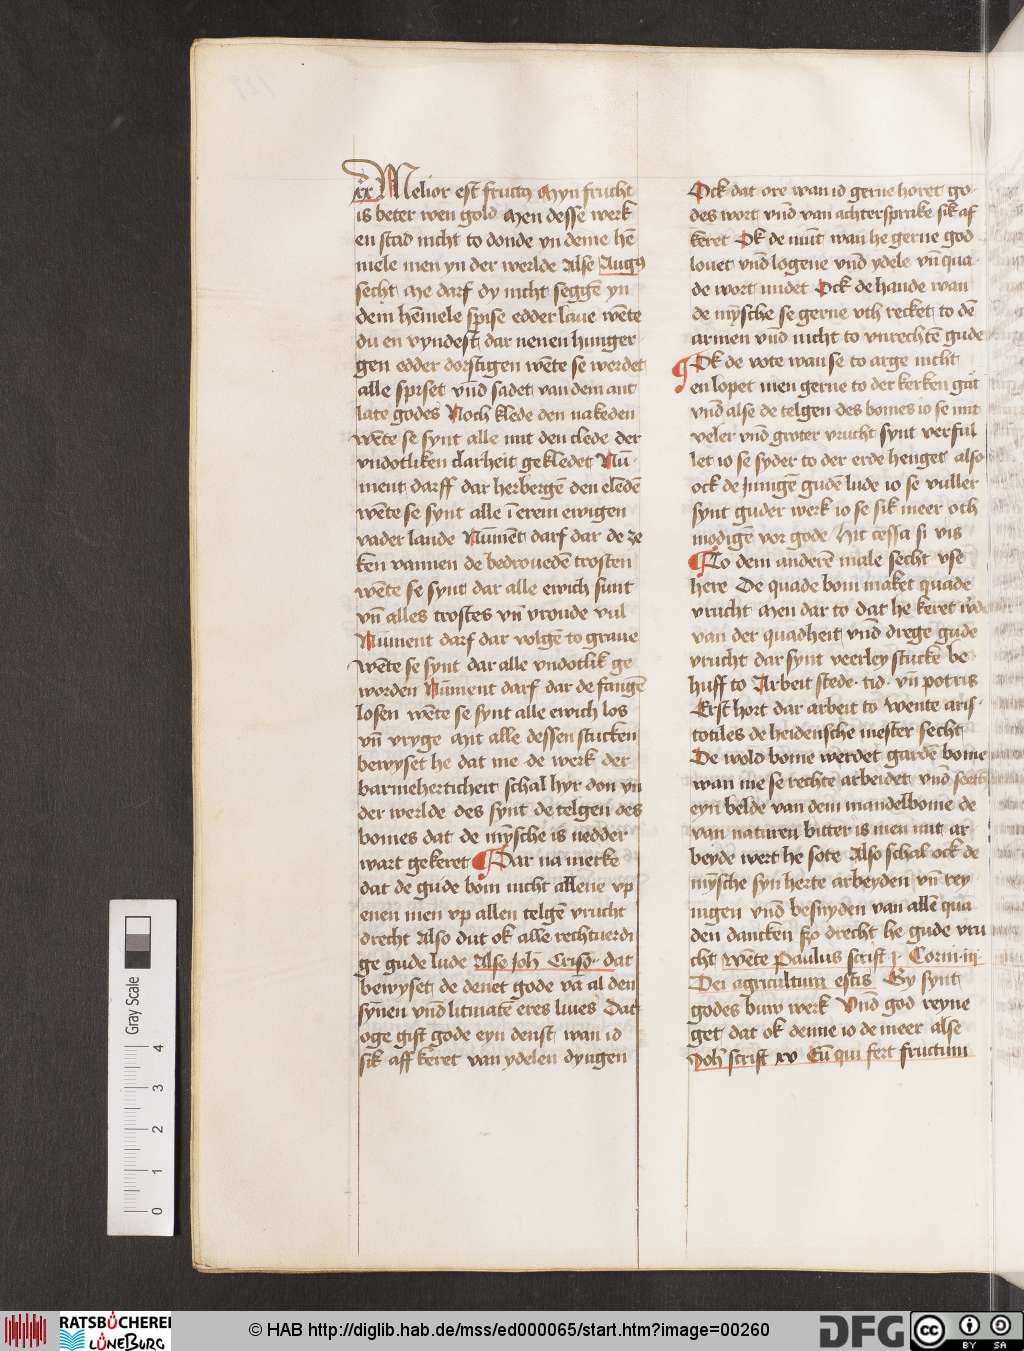 xx Melior est fructꝰ Myn frucht
is beter wen gold Men desse werk
en stad nicht to donde yn deme hē
mele men yn der werlde Alse Augꝰ
secht Me darf dy nicht seggē yn
dem hēmele spise edder laue wēte
du en vyndest dar nenen hunger
gen edder dorstigen wēte se werdet
alle spiset vn̄d sadet van dem ant
late godes Noch klede den nakeden
wēte se synt alle mit den clede der
vndotliken clarheit gekledet Nū
ment darff dar herbergē den elēdē
wēte se synt alle ī erem ewigen
vader lande Nūmēt darf dar de ze
ken vannen de bedrouedē trosten
wēte se synt dar alle ewich sunt
vn̄ alles trostes vn̄ vroude vul
Nūment darf dar volgē to graue
wēte se synt dar alle vndotlik ge
worden Nūment darf dar de fangē
losen wēte se synt alle ewich los
vn̄ vryge Mit alle dessen stucken
bewyset he dat me de werk der
barmeherticheit schal hyr don yn
der werlde des synt de telgen des
bomes dat de mȳsche is nedder
wart gekeret Dar na merke
dat de gude bom nicht allene vp
enen men vp allen telgē vrucht
drecht Also dut ok alle rechtuerdi
ge gude lude Alse Joh̄ Crisō dat
bewyset de denet gode vā al den
sȳnen vn̄d litmatē eres liues Dat
oge gift gode eyn denst wan id
sik aff keret van ydelen dyngen
Ock dat ore wan id gerne horet go
des wort vn̄d van achtersprake sik af
keret Ok de mūt wan he gerne god
louet vn̄d logene vn̄d ydele vn̄ qua
de wort midet Ock de hande wan
de mȳsche se gerne vth recket to dē
armen vn̄d nicht to vnrechtē gude
Ok de vote wan se to arge nicht
en lopet men gerne to der kerken gāt
vn̄d alse de telgen des bomes io se mit
veler vn̄d groter vrucht synt verful
let io se syder to der erde henget also
ock de Jnnigē gudē lude io se vuller
synt guder werk io se sik meer oth
modigē vor gode Hit cessa si vis
To dem anderē male secht vse
here De quade bom maket quade
vrucht Men dar to dat he keret w̓de
van der quadheit vn̄d drege gude
vrucht dar synt veerley stucke be
huff to Arbeit stede tid vn̄ potris
Erst hort dar arbeit to wente aris
totiles de heidensche mester secht
De wold bome werdet gardē bome
wan me se rechte arbeidet vn̄d sett
eyn belde van dem mandelbome de
van naturen bitter is men mit ar
beyde wert he sote Also schal ock de
mȳsche syn herte arbeyden vn̄ rey
nigen vn̄d besnyden van allē qua
den dancken szo drecht he gude vru
cht wēte Paulus scrift j Corin iij
Dei agricultura estis Gy synt
godes buw werk Vn̄d god reyne
get dat ok denne io de meer alse
Joh̄ scrift xv Eū qui fert fructum
Gray Scale
0 1 2 3 4
RATSBÜCHEREI
LÜNEBURG
© HAB http://diglib.hab.de/mss/ed000065/start.htm?image=00260
DFG
cc BY SA